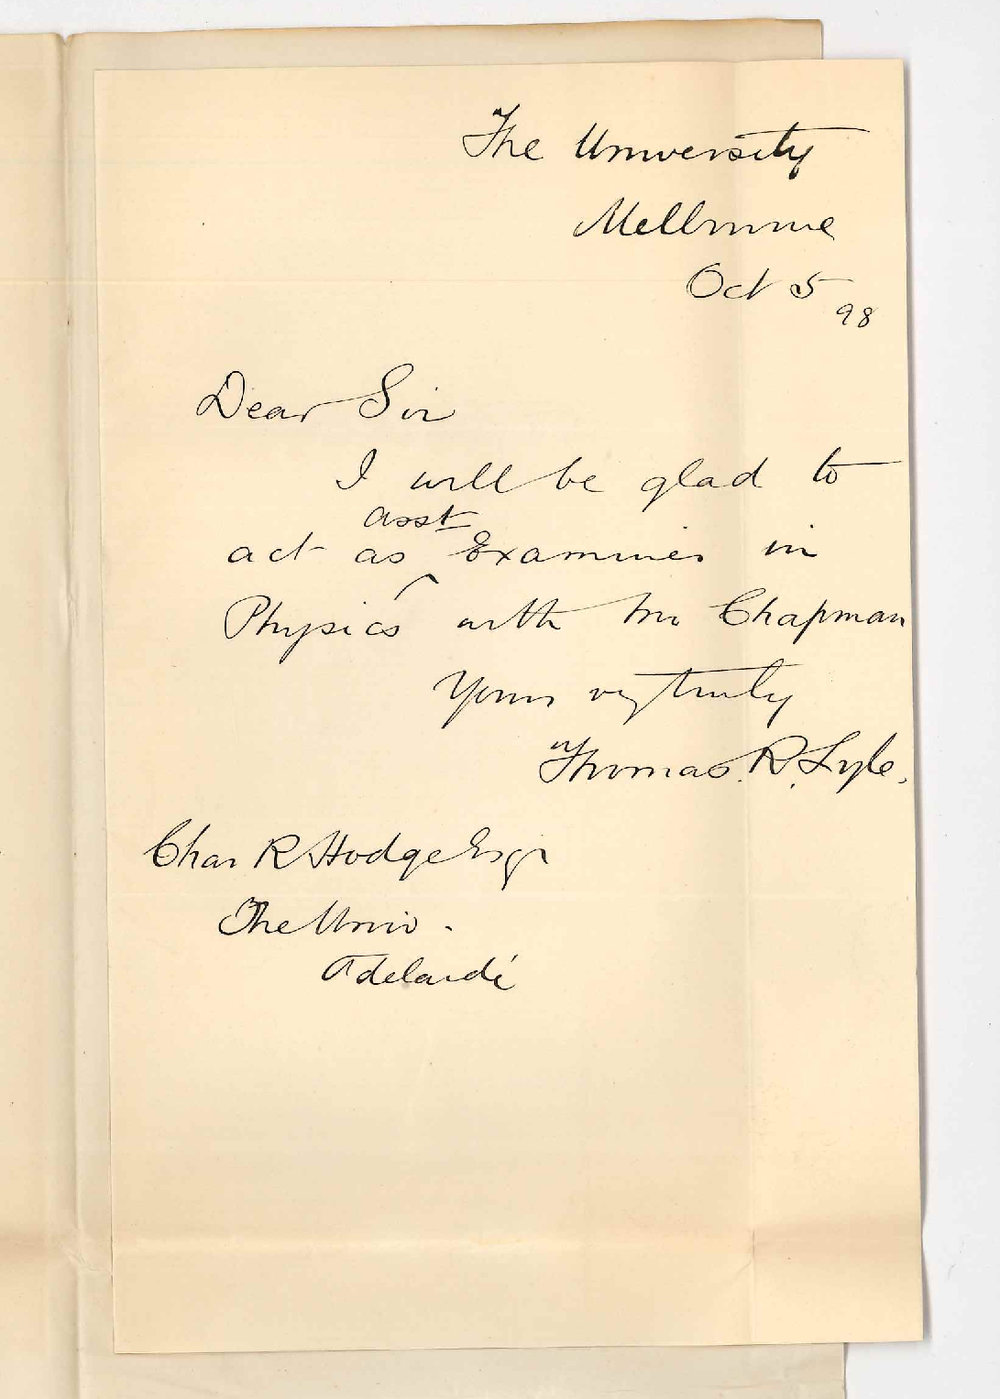 The University
Melbourne
Oct 5
98
Dear Sir
I will be glad to
asst
act as Examiner in
Physics with Mr Chapman
Yours vy truly
Thomas R. Lyle.
Chas R Hodge Esqr
The Univ.
Adelaide